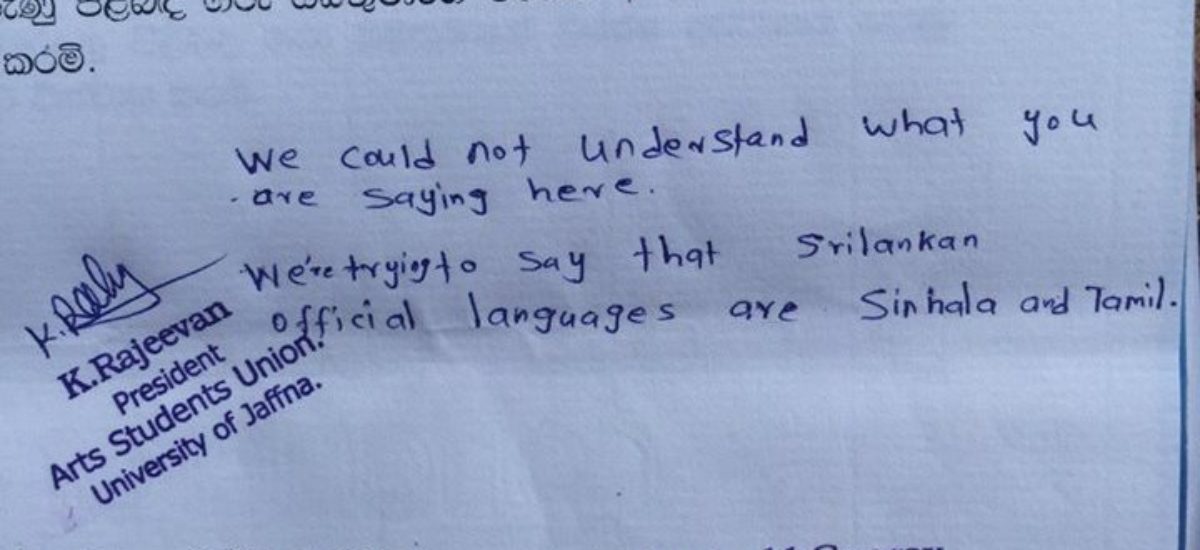 කරමි.
We could not understand what you
are saying here.
We're trying to say that Srilankan
official languages are Sinhala and Tamil.
K.Rajeevan
President
Arts Students Union.
University of Jaffna.